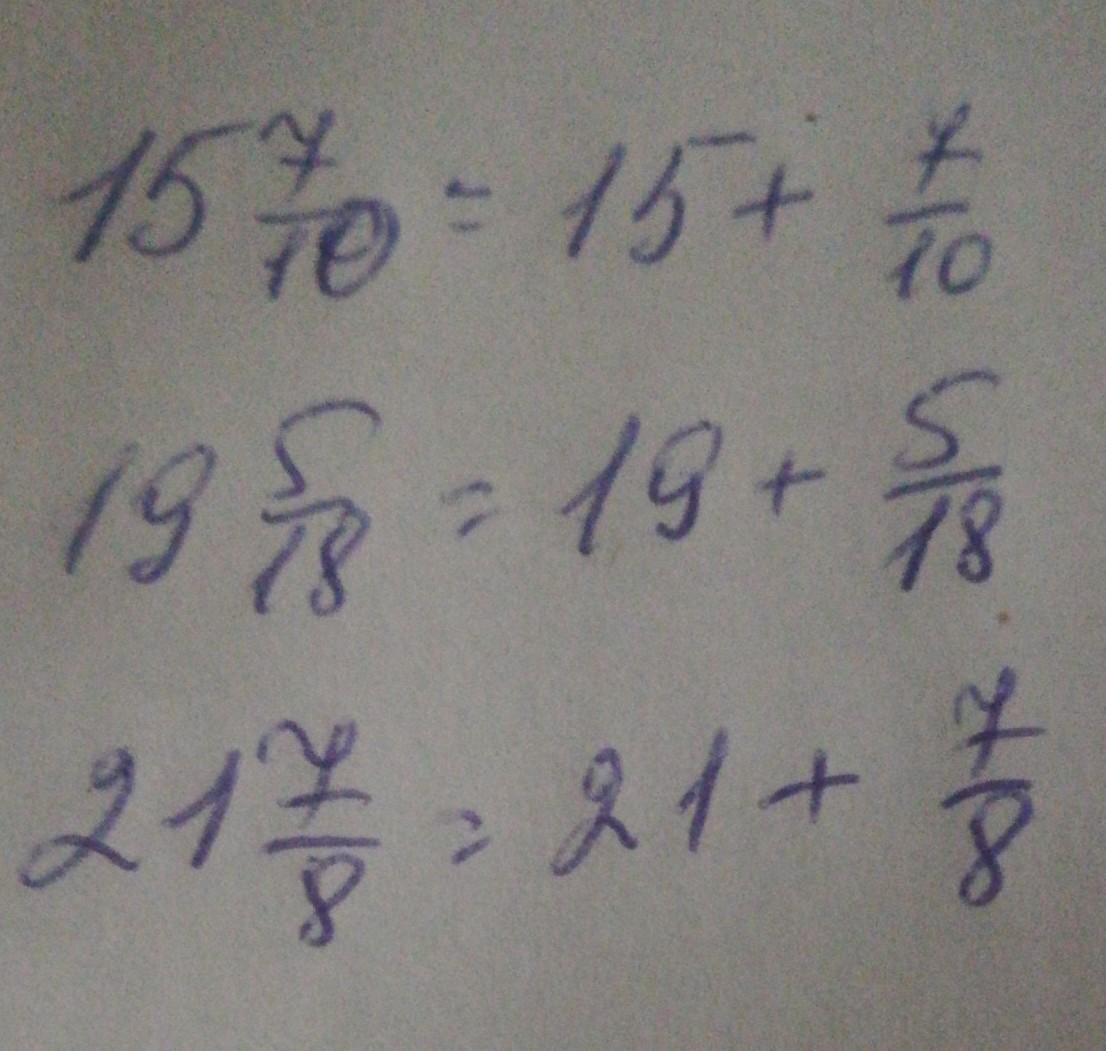 15 7/10 = 15 + 7/10
19 5/18 = 19 + 5/18
21 7/8 = 21 + 7/8